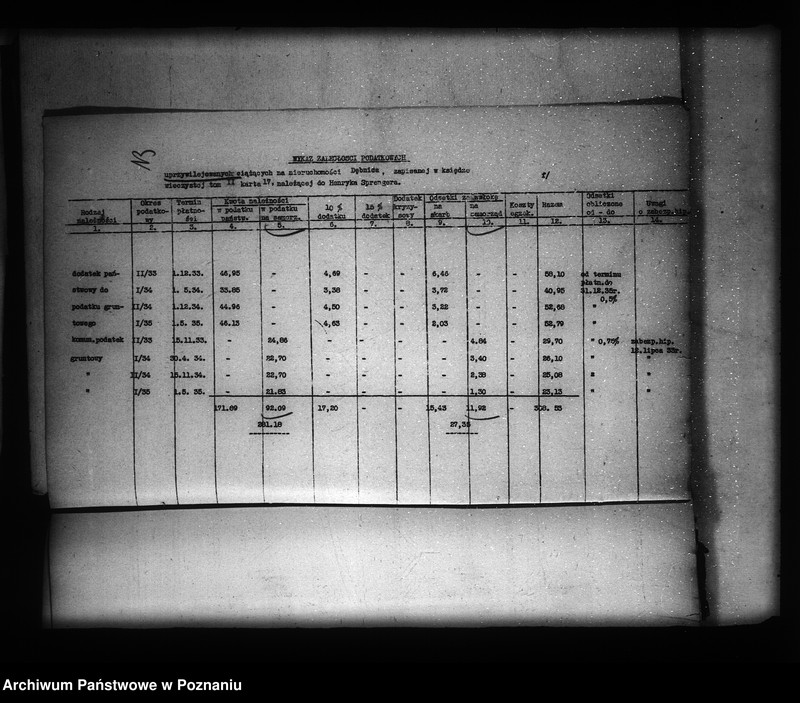 NB
WYKAZ ZALEGŁOŚCI PODATKOWYCH
uprzywilejowanych ciążących na nieruchomości Dębnica, zapisanej w księdze
wieczystej tom II karta 17, należącej do Henryka Sprengera.
Rodzaj należności | Okres podatko-wy | Termin płatno-ści | Kwota należności w podatku państw. | w podatku na samorz. | 10 % dodatku | 15 % dodatek | Dodatek kryzy-sowy | Odsetki za zwłokę na skarb | na samorząd | Koszty egzek. | Razem | Odsetki obliczone od - do | Uwagi o zabezp.hip.
1. | 2. | 3. | 4. | 5. | 6. | 7. | 8. | 9. | 10. | 11. | 12. | 13. | 14.
dodatek pań- | II/33 | 1.12.33. | 46,95 | - | 4,69 | - | - | 6,46 | - | - | 58,10 | od terminu
płatn.do
stwowy do | I/34 | 1. 5.34. | 33.85 | - | 3,38 | - | - | 3,72 | - | - | 40,95 | 31.12.35r.
0,5%
podatku grun- | II/34 | 1.12.34. | 44.96 | - | 4,50 | - | - | 3,22 | - | - | 52,68 | "
towego | I/35 | 1.5. 35. | 46.13 | - | 4,63 | - | - | 2,03 | - | - | 52,79 | "
komun.podatek | II/33 | 15.11.33. | - | 24,86 | - | - | - | - | 4.84 | - | 29,70 | " 0,75% | zabezp.hip.
12.lipca 35r.
gruntowy | I/34 | 30.4. 34. | - | 22,70 | - | - | - | - | 3,40 | - | 26,10 | " | "
" | II/34 | 15.11.34. | - | 22,70 | - | - | - | - | 2,38 | - | 25,08 | " | "
" | I/35 | 1.5. 35. | - | 21.83 | - | - | - | - | 1,30 | - | 23,13 | " | "
171.89 | 92.09 | 17,20 | - | - | 15,43 | 11,92 | - | 308. 53
281.18 | 27,35
Archiwum Państwowe w Poznaniu